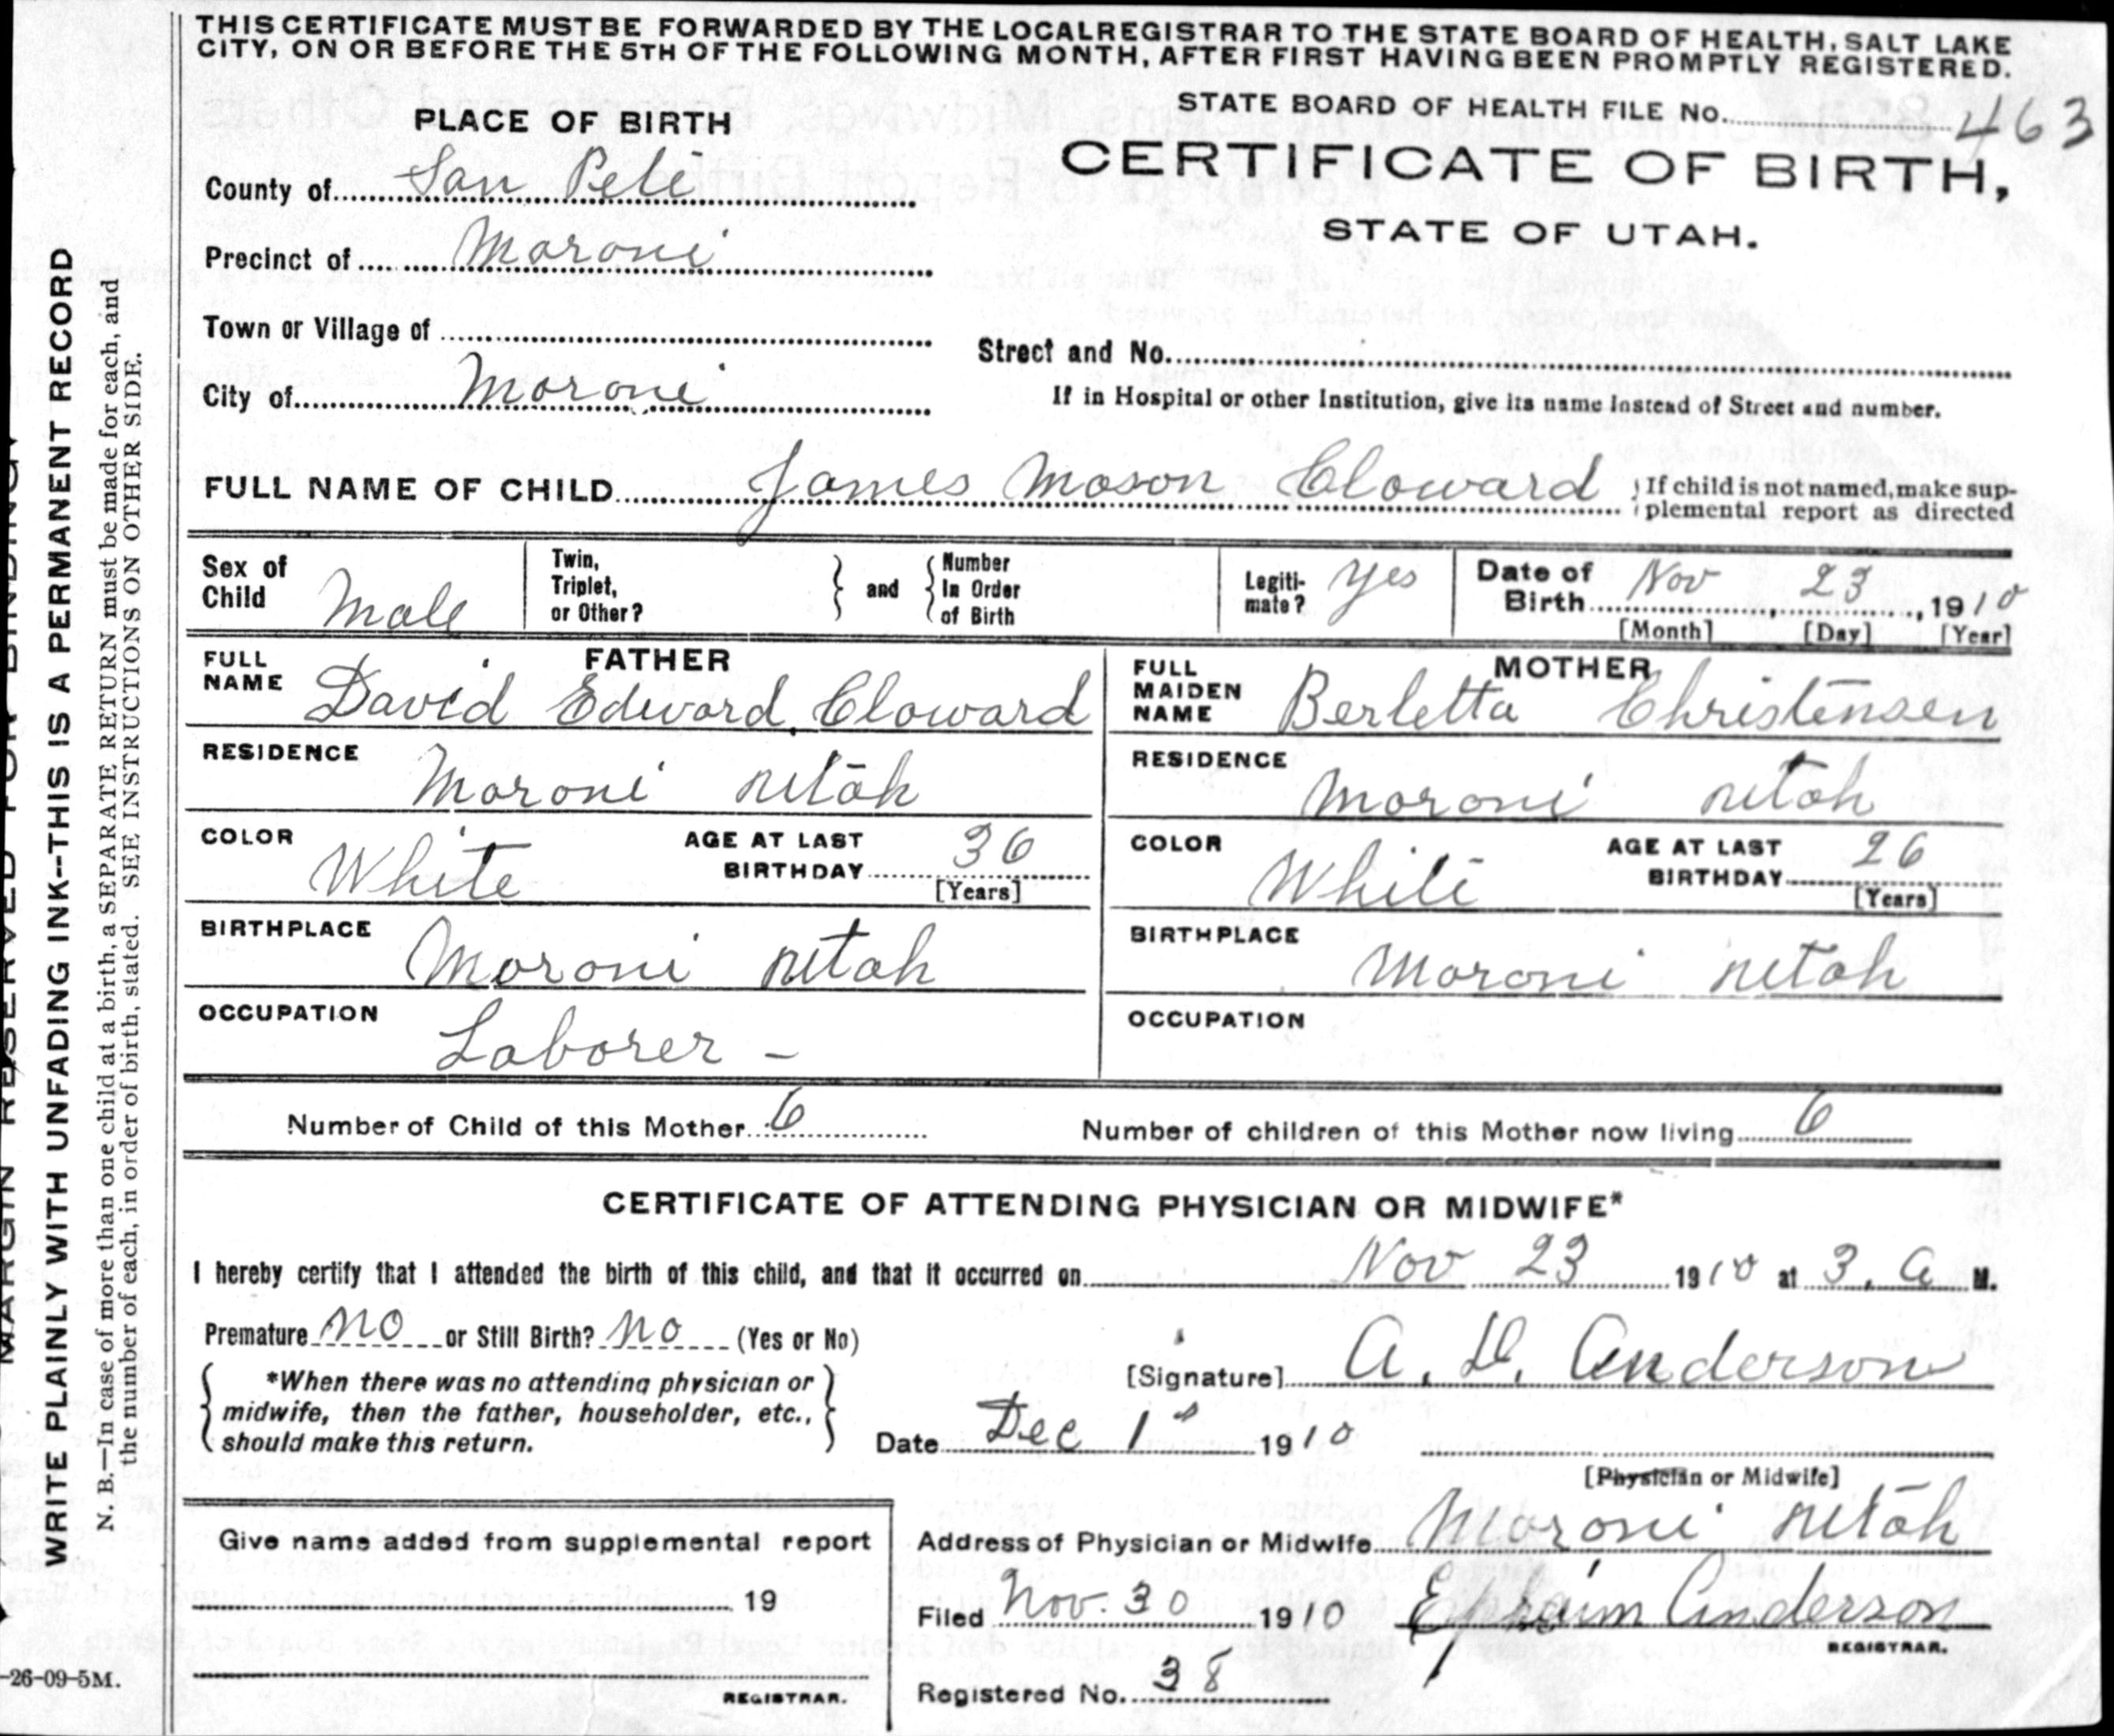 THIS CERTIFICATE MUST BE FORWARDED BY THE LOCAL REGISTRAR TO THE STATE BOARD OF HEALTH, SALT LAKE
CITY, ON OR BEFORE THE 5TH OF THE FOLLOWING MONTH, AFTER FIRST HAVING BEEN PROMPTLY REGISTERED.
STATE BOARD OF HEALTH FILE No. 463
PLACE OF BIRTH
CERTIFICATE OF BIRTH,
STATE OF UTAH.
County of San Pete
Precinct of Moroni
Town or Village of
Street and No.
City of Moroni
If in Hospital or other Institution, give its name instead of Street and number.
FULL NAME OF CHILD James Mason Cloward
If child is not named, make sup-
plemental report as directed
Sex of
Child Male
Twin,
Triplet,
or Other?
and
Number
In Order
of Birth
Legiti-
mate? yes
Date of
Birth Nov 23, 1910
[Month] [Day] [Year]
FATHER
FULL
NAME David Edward Cloward
RESIDENCE Moroni Utah
COLOR White
AGE AT LAST
BIRTHDAY 36
[Years]
BIRTHPLACE Moroni Utah
OCCUPATION Laborer -
MOTHER
FULL
MAIDEN
NAME Berletta Christensen
RESIDENCE Moroni Utah
COLOR White
AGE AT LAST
BIRTHDAY 26
[Years]
BIRTHPLACE Moroni Utah
OCCUPATION
Number of Child of this Mother 6
Number of children of this Mother now living 6
CERTIFICATE OF ATTENDING PHYSICIAN OR MIDWIFE*
I hereby certify that I attended the birth of this child, and that it occurred on Nov 23 1910 at 3. a M.
Premature no or Still Birth? no (Yes or No)
*When there was no attending physician or
midwife, then the father, householder, etc.,
should make this return.
[Signature] A. D. Anderson
Date Dec 1s 1910
[Physician or Midwife]
Address of Physician or Midwife Moroni Utah
Give name added from supplemental report
19
REGISTRAR.
Filed Nov. 30 1910 Ephraim Anderson
REGISTRAR.
Registered No. 38
MARGIN RESERVED FOR BINDING
WRITE PLAINLY WITH UNFADING INK--THIS IS A PERMANENT RECORD
N. B.—In case of more than one child at a birth, a SEPARATE RETURN must be made for each, and
the number of each, in order of birth, stated. SEE INSTRUCTIONS ON OTHER SIDE.
-26-09-5M.